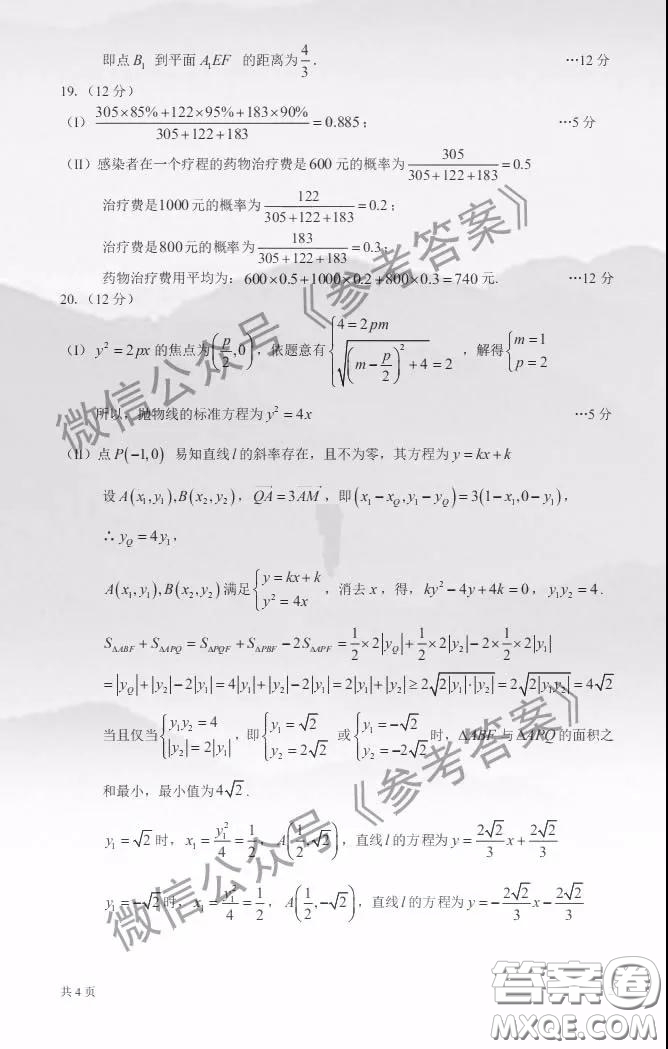 即点 B₁ 到平面 A₁EF 的距离为 4/3 . …12 分
19.（12 分）
（I）(305×85%+122×95%+183×90%)/(305+122+183)=0.885； …5 分
（II）感染者在一个疗程的药物治疗费是 600 元的概率为 305/(305+122+183)=0.5
治疗费是1000 元的概率为 122/(305+122+183)=0.2；
治疗费是800 元的概率为 183/(305+122+183)=0.3；
药物治疗费用平均为：600×0.5+1000×0.2+800×0.3=740 元. …12 分
20.（12 分）
（I） y²=2px 的焦点为(p/2,0)，依题意有{4=2pm, √((m−p/2)²+4)=2 ，解得{m=1, p=2
所以，抛物线的标准方程为 y²=4x …5 分
（II）点 P(−1,0) 易知直线 l 的斜率存在，且不为零，其方程为 y=kx+k
设 A(x₁,y₁),B(x₂,y₂)，QA→=3AM→，即(x₁−x_Q,y₁−y_Q)=3(1−x₁,0−y₁)，
∴ y_Q=4y₁，
A(x₁,y₁),B(x₂,y₂)满足{y=kx+k, y²=4x ，消去 x，得，ky²−4y+4k=0，y₁y₂=4.
S_△ABF+S_△APQ=S_△PQF+S_△PBF−2S_△APF=1/2×2|y_Q|+1/2×2|y₂|−2×1/2×2|y₁|
=|y_Q|+|y₂|−2|y₁|=4|y₁|+|y₂|−2|y₁|=2|y₁|+|y₂|≥2√(2|y₁|·|y₂|)=2√(2|y₁y₂|)=4√2
当且仅当{y₁y₂=4, |y₂|=2|y₁| ，即{y₁=√2, y₂=2√2 或{y₁=−√2, y₂=−2√2 时，ΔABF 与ΔAPQ 的面积之
和最小，最小值为4√2 .
y₁=√2 时，x₁=y₁²/4=1/2，A(1/2,√2)，直线 l 的方程为 y=(2√2/3)x+2√2/3
y₁=−√2 时，x₁=y₁²/4=1/2，A(1/2,−√2)，直线 l 的方程为 y=−(2√2/3)x−2√2/3
共 4 页
微信公众号《参考答案》
微信公众号《参考答案》
答案圈
MXQE.COM